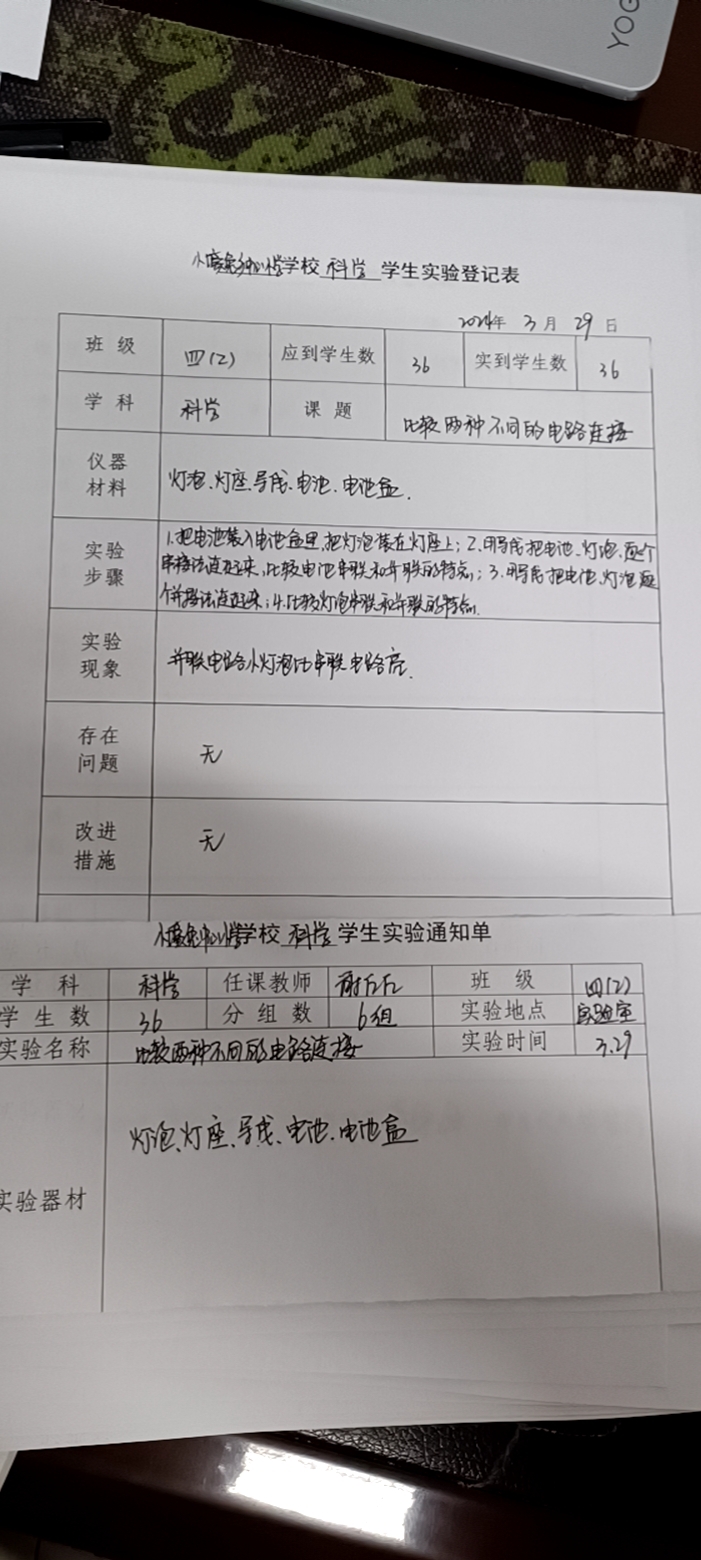 YOG
学校 科学 学生实验登记表
2024年 3月 29日
班级 四(2) 应到学生数 36 实到学生数 36
学科 科学 课题 比较两种不同的电路连接
仪器材料 灯泡、灯座、导线、电池、电池盒.
实验步骤 1.把电池装入电池盒里,把灯泡装在灯座上;2.用导线把电池、灯泡,逐个
串接法连起来,比较电池串联和并联的特点;3.用导线把电池、灯泡逐
个并接法连起来;4.比较灯泡串联和并联的特点.
实验现象 并联电路小灯泡比串联电路亮.
存在问题 无
改进措施 无
学校 科学 学生实验通知单
学科 科学 任课教师 班级 四(2)
学生数 36 分组数 6组 实验地点 实验室
实验名称 比较两种不同的电路连接 实验时间 3.29
实验器材 灯泡、灯座、导线、电池、电池盒